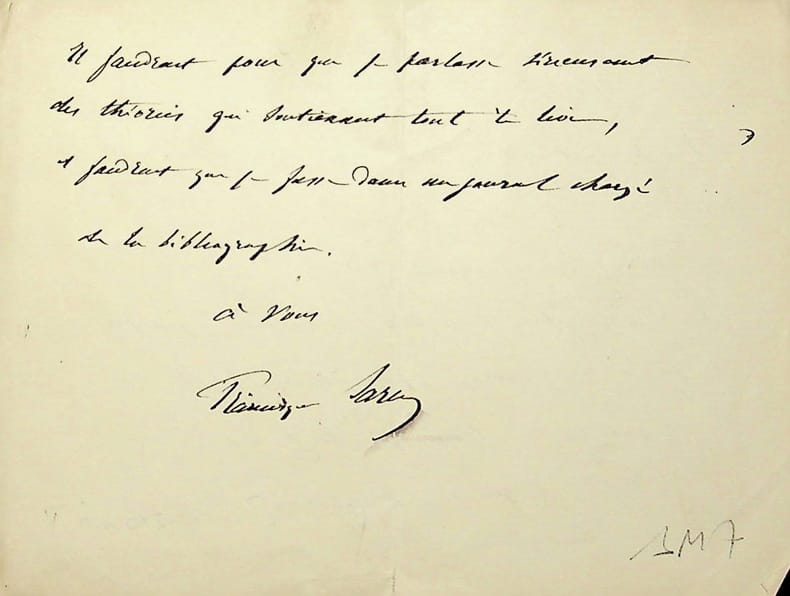 Il faudrait pour que je parlasse sérieusement
des théories qui soutiennent tout le livre,
il faudrait que je fusse dans un journal chargé
de la bibliographie.
à vous
Francisque Sarcey